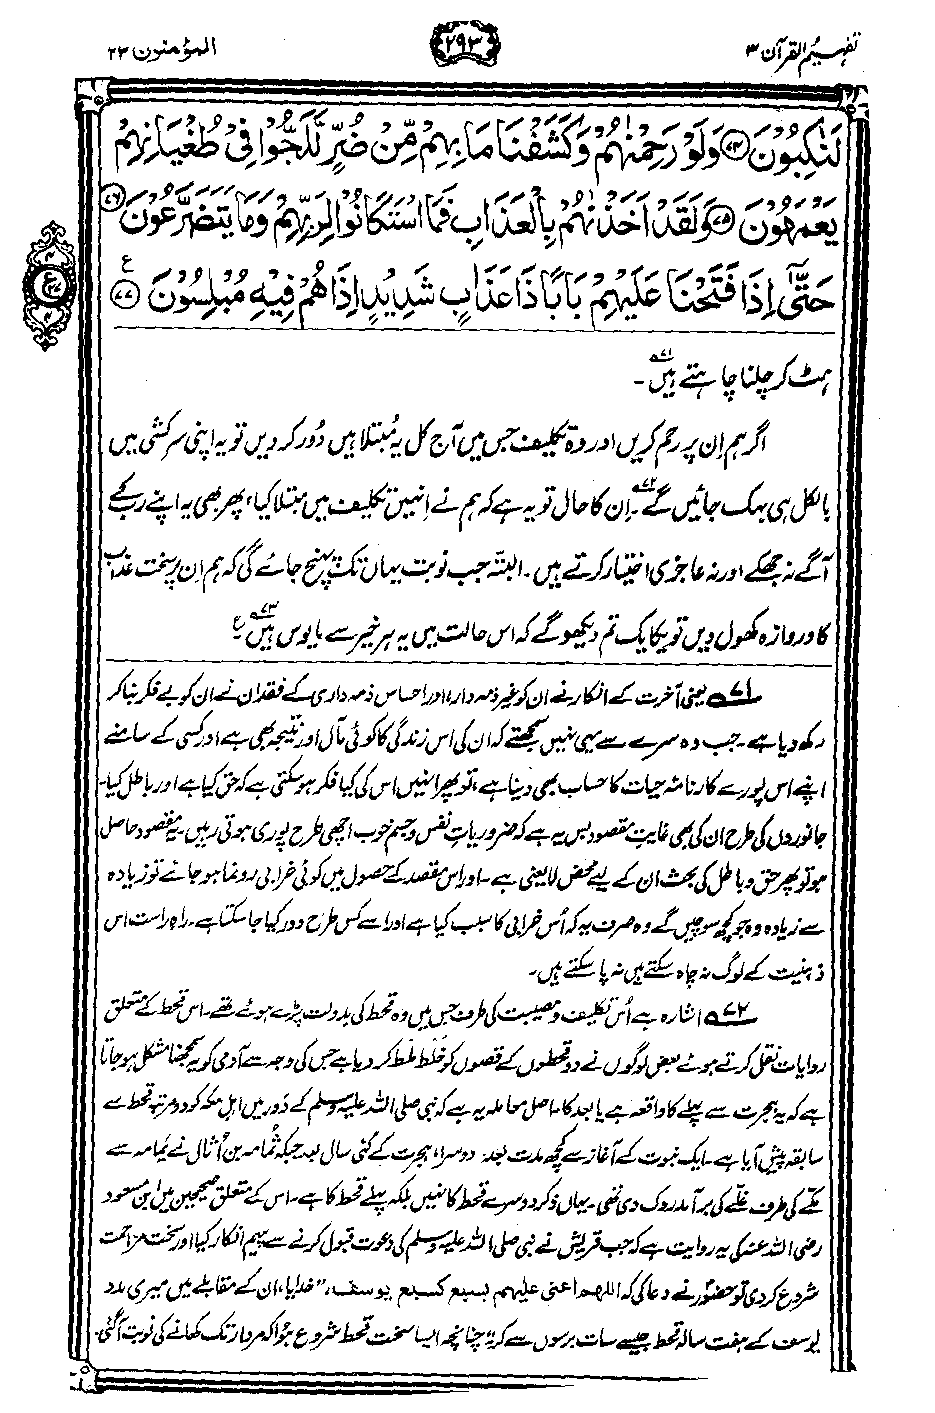 تفہیم القرآن ۳
۲۹۳
المؤمنون ۲۳
لَنٰكِبُوْنَ ﴿۷۴﴾ وَلَوْ رَحِمْنٰهُمْ وَكَشَفْنَا مَا بِهِمْ مِّنْ ضُرٍّ لَّلَجُّوْا فِيْ طُغْيَانِهِمْ
يَعْمَهُوْنَ ﴿۷۵﴾ وَلَقَدْ اَخَذْنٰهُمْ بِالْعَذَابِ فَمَا اسْتَكَانُوْا لِرَبِّهِمْ وَمَا يَتَضَرَّعُوْنَ ﴿۷۶﴾
حَتّٰٓى اِذَا فَتَحْنَا عَلَيْهِمْ بَابًا ذَا عَذَابٍ شَدِيْدٍ اِذَا هُمْ فِيْهِ مُبْلِسُوْنَ ﴿۷۷﴾ ع
ہٹ کر چلنا چاہتے ہیں۔ ۷۱؎
اگر ہم اِن پر رحم کریں اور وہ تکلیف جس میں آج کل یہ مُبتلا ہیں دُور کر دیں تو یہ اپنی سرکشی میں
بالکل ہی بہک جائیں گے۔ ۷۲؎ اِن کا حال تو یہ ہے کہ ہم نے اِنہیں تکلیف میں مبتلا کیا، پھر بھی یہ اپنے رب کے
آگے نہ جُھکے اور نہ عاجزی اختیار کرتے ہیں۔ البتہ جب نوبت یہاں تک پہنچ جائے گی کہ ہم اِن پر سخت عذاب
کا دروازہ کھول دیں تو یکایک تم دیکھو گے کہ اس حالت میں یہ ہر خیر سے مایوس ہیں ۷۳؎ ع
۷۱؎ یعنی آخرت کے انکار نے ان کو غیر ذمہ دار، اور احساس ذمہ داری کے فقدان نے ان کو بے فکر بنا کر
رکھ دیا ہے۔ جب وہ سرے سے یہی نہیں سمجھتے کہ ان کی اس زندگی کا کوئی مآل اور نتیجہ بھی ہے اور کسی کے سامنے
اپنے اس پورے کارنامۂ حیات کا حساب بھی دینا ہے، تو پھر انہیں اس کی کیا فکر ہو سکتی ہے کہ حق کیا ہے اور باطل کیا۔
جانوروں کی طرح ان کی بھی غایت مقصود بس یہ ہے کہ ضروریاتِ نفس و جسم خوب اچھی طرح پوری ہوتی رہیں۔ یہ مقصود حاصل
ہو تو پھر حق و باطل کی بحث ان کے لیے محض لایعنی ہے۔ اور اس مقصد کے حصول میں کوئی خرابی رونما ہو جائے تو زیادہ
سے زیادہ وہ جو کچھ سوچیں گے وہ صرف یہ کہ اُس خرابی کا سبب کیا ہے اور اسے کس طرح دور کیا جا سکتا ہے۔ راہِ راست اس
ذہنیت کے لوگ نہ چاہ سکتے ہیں نہ پا سکتے ہیں۔
۷۲؎ اشارہ ہے اُس تکلیف و مصیبت کی طرف جس میں وہ قحط کی بدولت پڑے ہوئے تھے۔ اس قحط کے متعلق
روایات نقل کرتے ہوئے بعض لوگوں نے دو قحطوں کے قصوں کو خلط ملط کر دیا ہے جس کی وجہ سے آدمی کو یہ سمجھنا مشکل ہو جاتا
ہے کہ یہ ہجرت سے پہلے کا واقعہ ہے یا بعد کا۔ اصل معاملہ یہ ہے کہ نبی صلی اللہ علیہ وسلم کے دَور میں اہلِ مکہ کو دو مرتبہ قحط سے
سابقہ پیش آیا ہے۔ ایک نبوت کے آغاز سے کچھ مدت بعد۔ دوسرا، ہجرت کے کئی سال بعد جبکہ ثُمامہ بن اُثال نے یَمامہ سے
مکّے کی طرف غلّے کی برآمد روک دی تھی۔ یہاں ذکر دوسرے قحط کا نہیں بلکہ پہلے قحط کا ہے۔ اس کے متعلق صحیحین میں ابن مسعود
رضی اللہ عنہ کی یہ روایت ہے کہ جب قریش نے نبی صلی اللہ علیہ وسلم کی دعوت قبول کرنے سے پیہم انکار کیا اور سخت مزاحمت
شروع کر دی تو حضورؐ نے دعا کی کہ اللھم اعنی علیھم بسبع کسبع یوسف، "خدایا، ان کے مقابلے میں میری مدد
یوسف کے ہفت سالہ قحط جیسے سات برسوں سے کر"۔ چنانچہ ایسا سخت قحط شروع ہوا کہ مردار تک کھانے کی نوبت آگئی۔